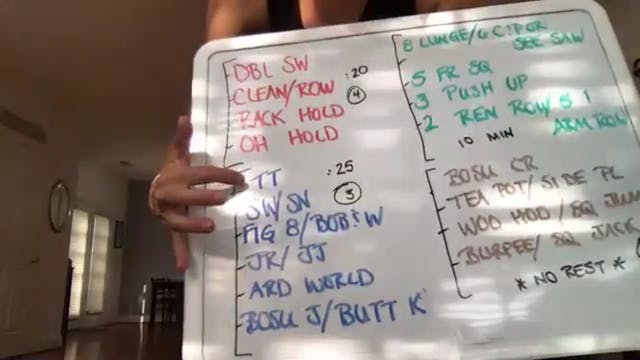 DBL SW
CLEAN/ROW :20
RACK HOLD 4
OH HOLD
TT :25
SW/SN 3
FIG 8/BOB & W
JR/JJ
ARD WORLD
BOSU J/BUTT K
8 LUNGE/6
SEE SAW
5 FR SQ
3 PUSH UP
2 REN ROW/5 1
ARM ROW
10 MIN
BOSU CR
TEA POT/SIDE PL
WOO HOO/SQ JUM
BURPEE/SQ JACK
* NO REST *